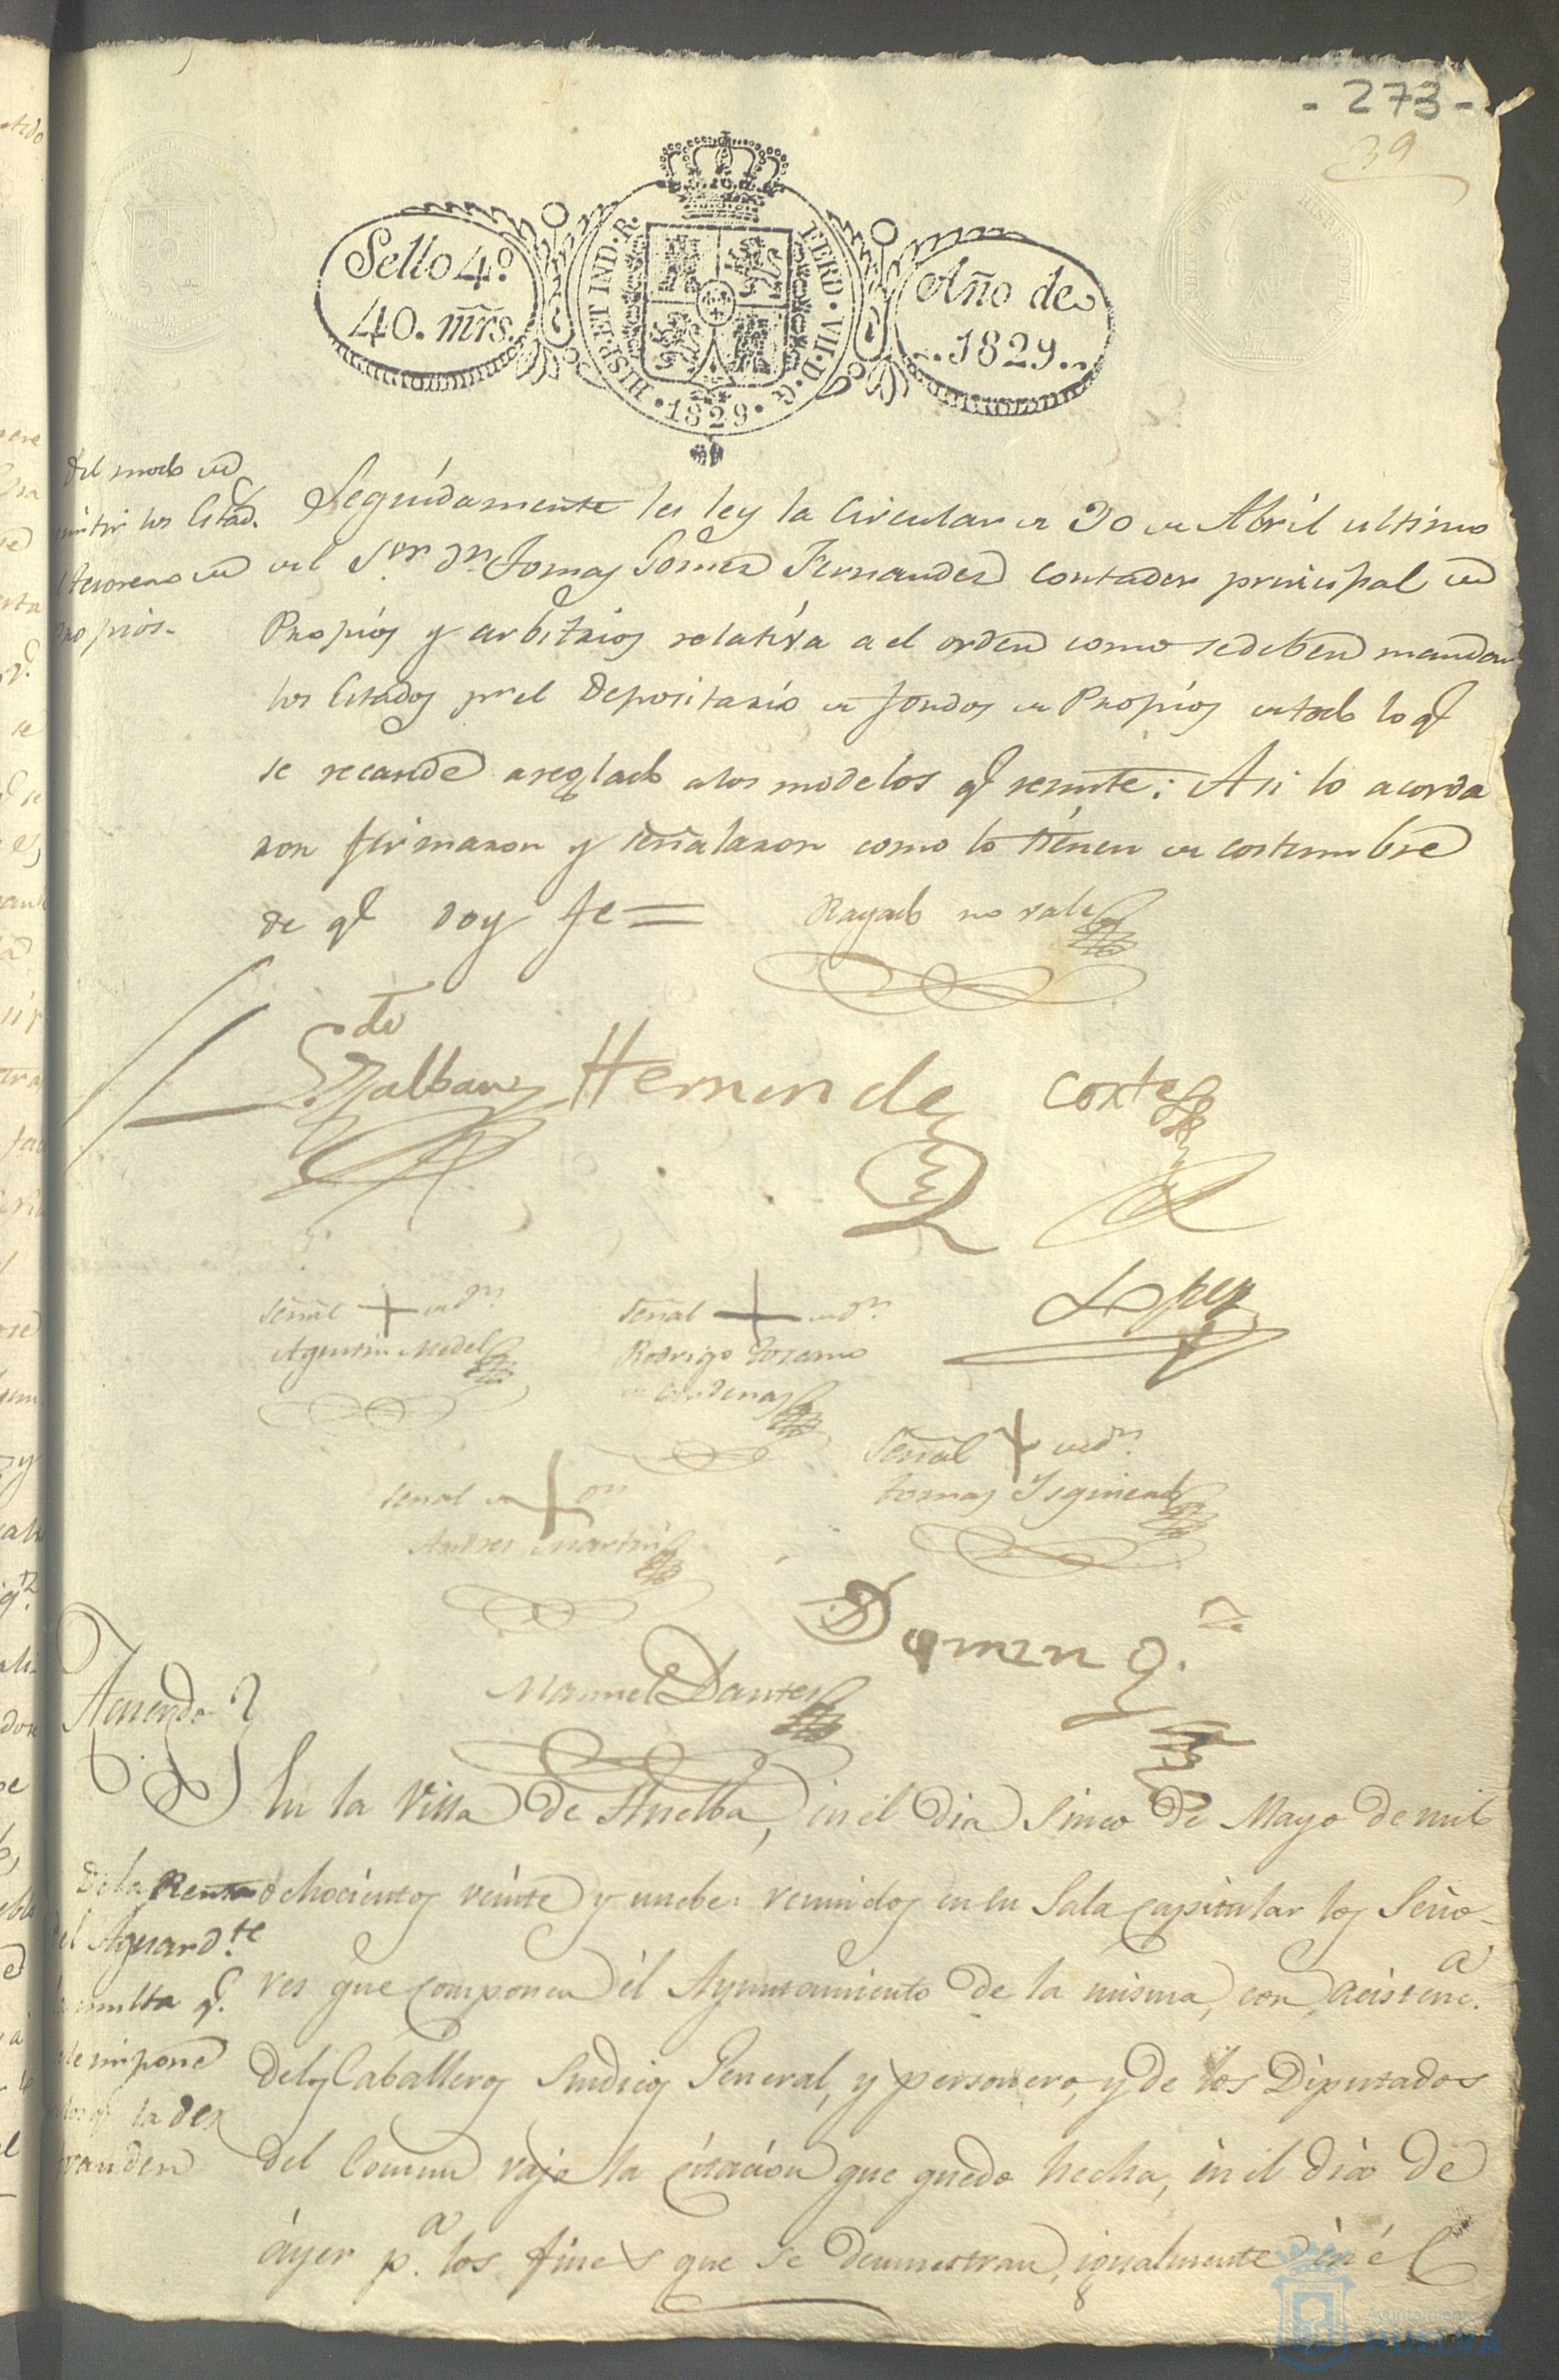 - 273 -
39
Sello 4º
40. mrs.
HISP. ET IND. R. FERD. VII. D. G.
1829
Año de
1829.
del modo de
remitir los Estad.
Tesorero de
Propios.
Seguidamente les ley la Circular de 30 de Abril ultimo
del Sor. Dn. Tomas Gomez Fernandez Contador principal de
Propios y arbitrios relativa a el orden como se deben mandar
los Estados pr. el Depositario de fondos de Propios de todo lo q.
se recaude areglado a los modelos q. remite: Asi lo acorda
ron firmaron y señalaron como lo tienen de costumbre
de q. doy fe =
Rayado no vale
Hernandez
Cortes
Lopez
Señal + de Dn.
Agustin Medel
Señal + de Dn.
Rodrigo Lozano
de Cardenas
Señal + de Dn.
Tomas Ysquierdo
Señal de + Dn.
Andres Martin
Manuel Dantes
Acuerdo
En la Villa de Huelba, en el dia sinco de Mayo de mil
De la Renta
del Aguardte.
la multa q.
se impone
a los q. la des
frauden
ochocientos veinte y nuebe: reunidos en su Sala Capitular los Seño-
res que componen él Ayuntamiento de la misma, con acistenca.
de los Caballeros Sindico General, y personero, y de los Diputados
del Comun vajo la citación que quedo hecha, en el dia de
áyer pa. los fines que se demuestran, igualmente en él
Ayuntamiento
HUELVA